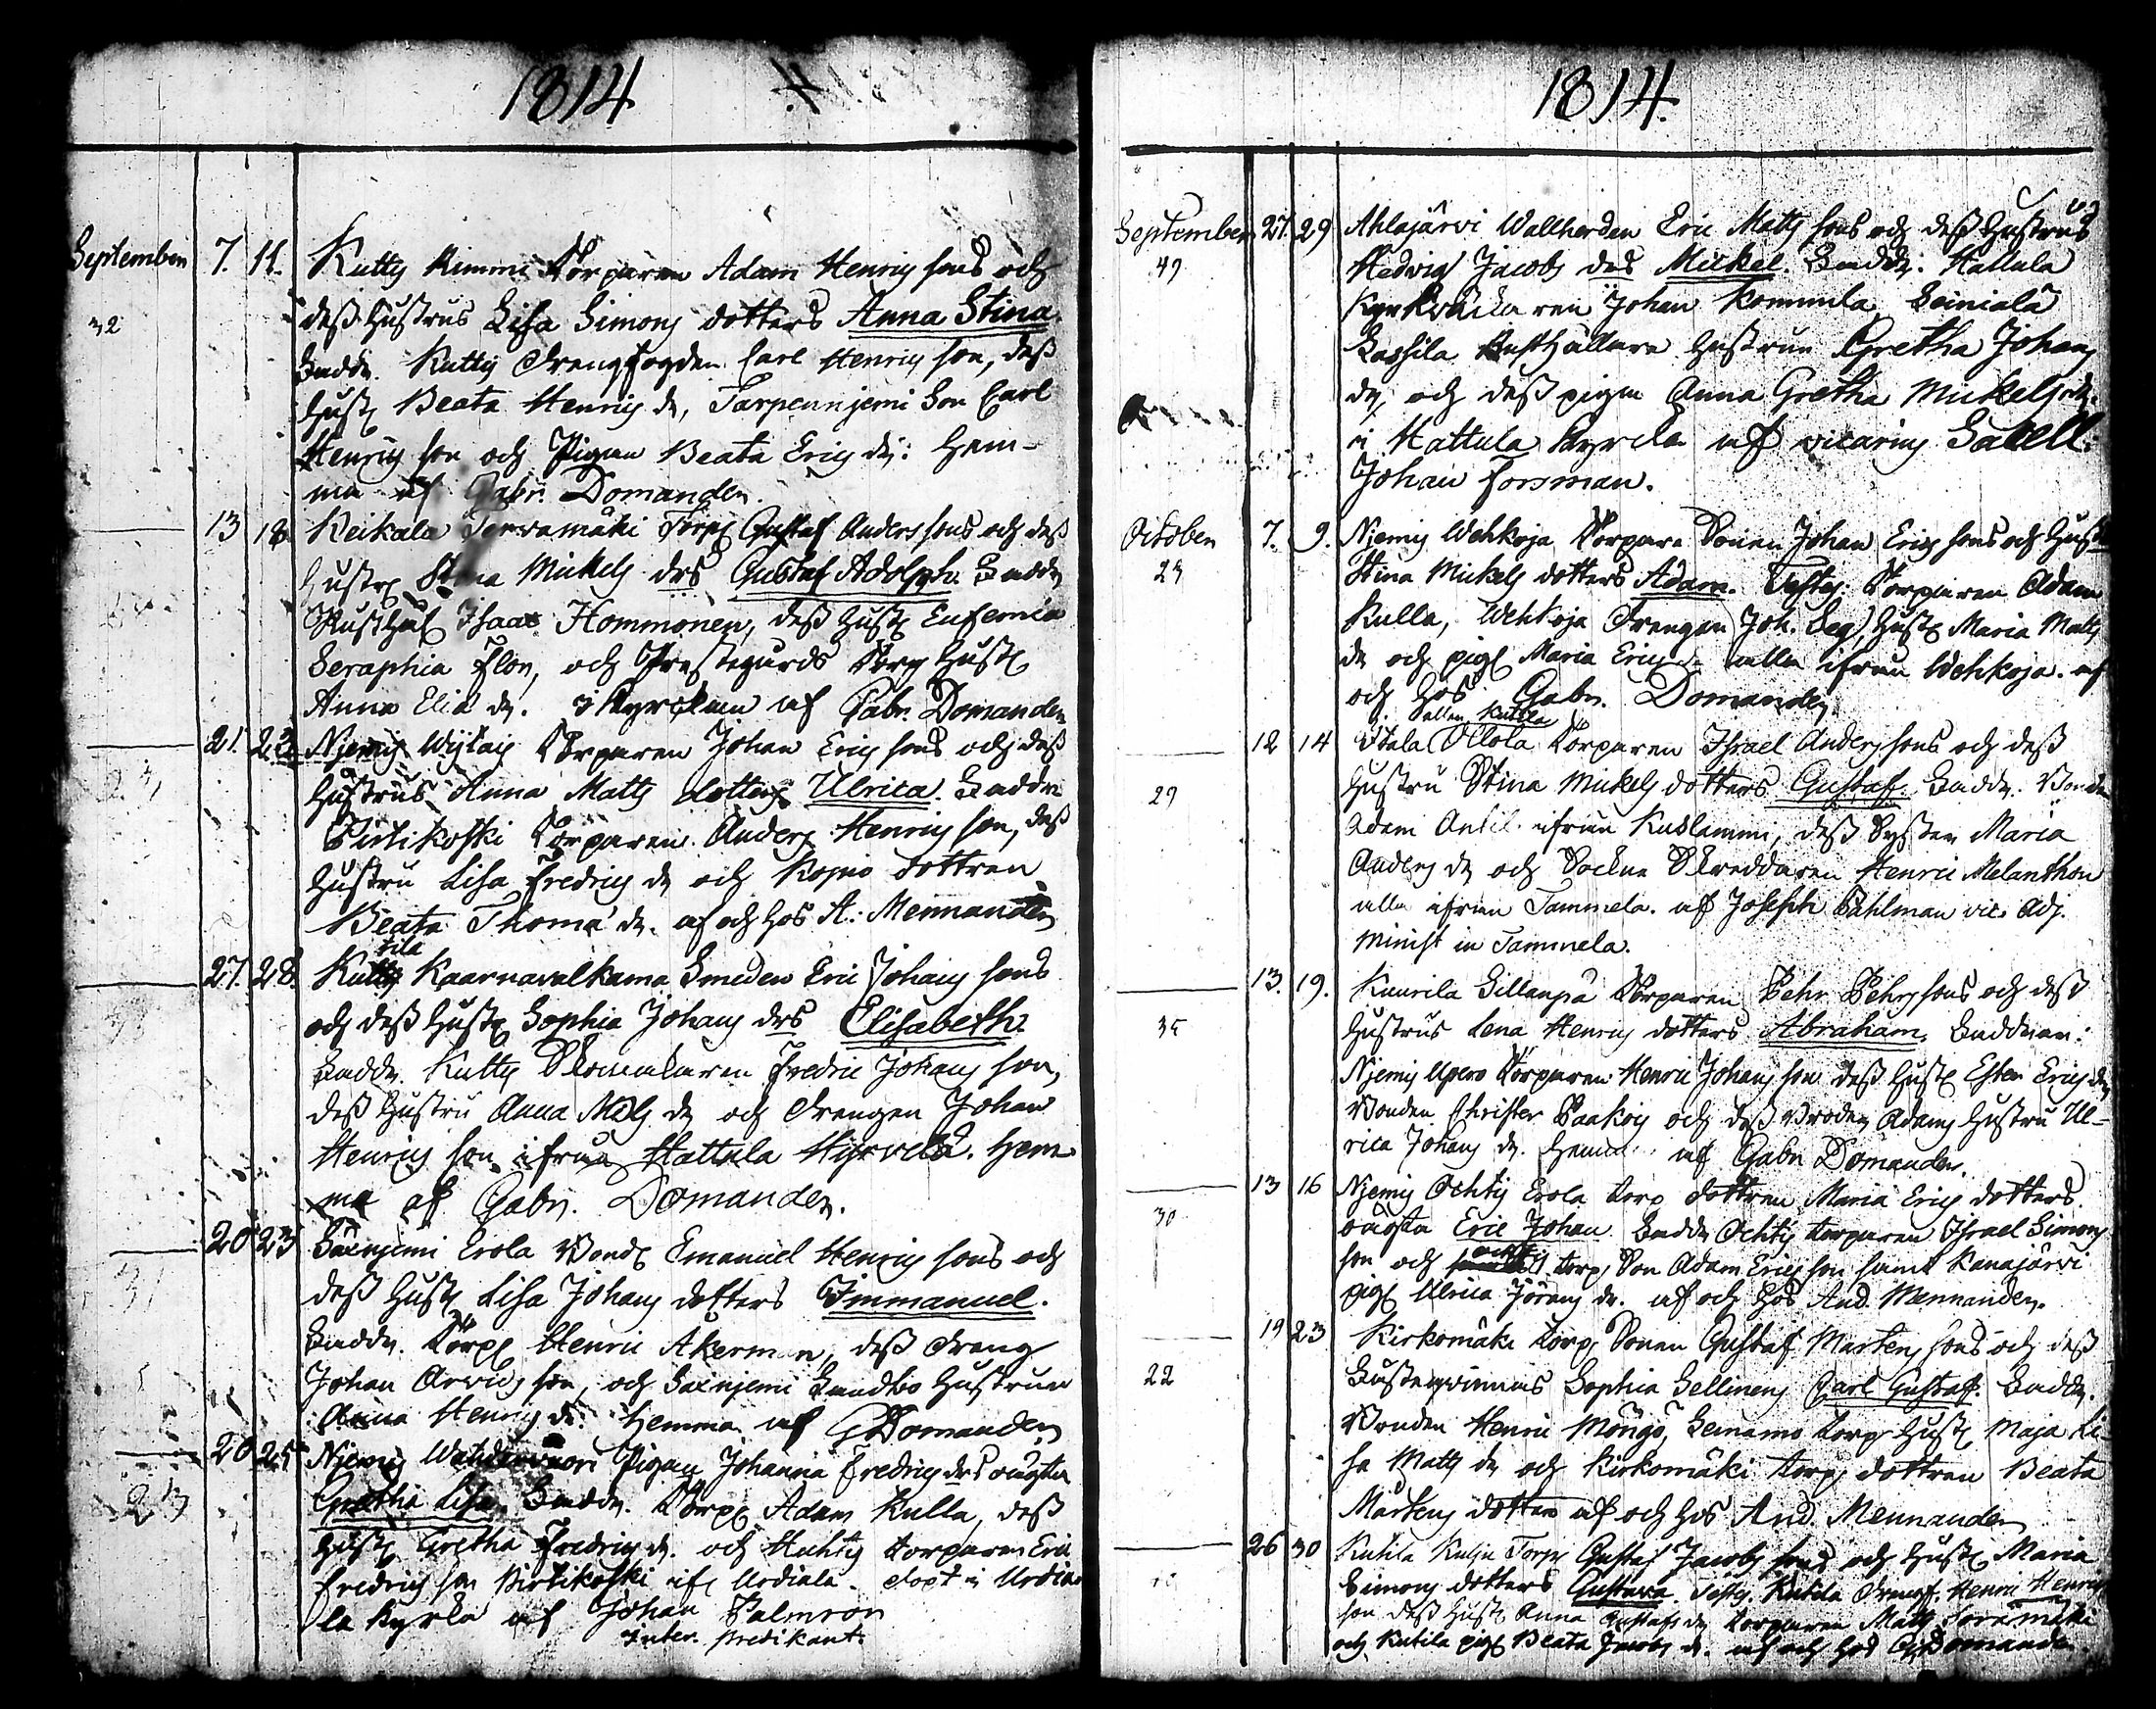 1814
September 7. 11. Kutty Rimmi Torparen Adam Henrics sons och
32 dess Hustrus Lisa Simons dotters Anna Stina.
Faddr. Kutty Drengfogden Carl Henrics son, dess
Hust. Beata Henrics dr, Tarpeenniemi Son Carl
Henrics son och Pigan Beata Erics dr: Hem-
ma af Gabr. Domander.
13 18 Keikala Tervamäki Torp. Gustaf Anders sons och dess
Hustr. Stina Mickels drs Gustaf Adolph. Faddr
Rusth. Isaac Hommonen, dess Hust. Eufemia
Seraphia Flor, och Prestegårds Torp Hust.
Anna Elia dr. i Kyrckan af Gabr. Domander
21. 23 Njemis Torparen Johan Erics sons och dess
Hustrus Anna Matts dotters Ulrica. Faddr
Pirtikoski Torparen Anders Henrics son, dess
Hustru Lisa Fredrics dr och Kojuo dottren
Beata Thomæ dr. af och hos A. Mennander
tila
27. 28. Kutty Kaarnavalkama Smeden Eric Johans sons
och dess Hust. Sophia Johans drs Elisabeth.
Faddr. Kutty Skomakaren Fredric Johans son,
dess Hustru Anna Mich dr och Drengen Johan
Henrics son ifrån Hattula Hyrvelä. Hem-
ma af Gabr. Domander.
20 23 Saxnjemi Erola Bond. Emanuel Henrics sons och
31 dess Hust. Lisa Johans dotters Immanuel.
Faddr. Torp. Henric Akerman, dess Dreng
Johan Arvids son, och Saxnjemi Hustrun
Anna Henrics dr. Hemma af G Domander
20 25 Njemis Pigan Johanna Fredrics drs oägta
23 Gretha Lisa. Faddr. Torp. Adam Kulla, dess
Hust. Gretha Fredrics dr. och Huhtis torparen Eric
Fredrics son Pirtikoski if. Urdiala. döpt i Urdia-
la kyrka af Johan Palmroos
inter. predikant.
1814.
September 27. 29 Ahlajärvi Wallherden Eric Matts sons och dess Hustrus
49 Hedvig Jacobs drs Mickel. Faddr. Hattula
Kyrkväktaren Johan Kommila, Leiniälä
Lassila Rusthållare Hustrun Gretha Johans
dr, och dess pigan Anna Gretha Mickels dr.
i Hattula Kyrcka af vicarius Sacell.
Johan Forsman.
October 7. 9. Njemis Wehkoja Torpare Sonen Johan Erics sons och Hust
24 Stina Mickels dotters Adam. Testes: Torparen Adam
Kulla, Wehkoja Drengen Joh. Seg, Hust. Maria Matts
dr och pig. Maria Erics dr alla ifrån Wehkoja. af
och hos Gabr. Domander.
Kutila
12 14 Itala Ollola Torparen Israel Anders sons och dess
29 Hustru Stina Mickels dotters Gustaf. Faddr. Bonden
Adam Antil. ifrån Kuslammi, dess Syster Maria
Anders dr och Sockne Skreddaren Henric Melanthon
alla ifrån Tammela. af Joseph Pahlman vic. Adj.
Minist in Tammela.
13. 19. Kuurila Sillanpä Torparen Pehr Pehrs sons och dess
35 Hustrus Lena Henrics dotters Abraham. Faddrar:
Njemis Upero Torparen Henric Johans son dess Hust. Ester Erics dr
Bonden Christer Paakois och dess Broder Adams Hustru Ul-
rica Johans dr. Hemma af Gabr Domander.
13 16 Njemis Ochtis Erola torp dottren Maria Erics dotters
30 oägta Eric Johan. Faddr Ochtis torparen Israel Simons
son och torp Son Adam Erics son samt Kanajärvi
pig. Ulrica Jörans dr. af och hos And. Mennander.
19 23 Kirkomäki torp Sonen Gustaf Mårtens sons och dess
22 Sophia Sellmens Carl Gustaf. Faddr.
Bonden Henric Möngö, Leinamo torp Hust. Maja Li-
sa Matts dr och Kirkomäki torp dottren Beata
Mårtens dotter af och hos And. Mennander
26 30 Kutila Kulju Torp. Gustaf Jacobs sons och Hust. Maria
Simons dotters Gustava. Test. Kutila Drengf. Henric Henrics
son dess Hust. Anna Gustafs dr torparen Matts Soramäki
och Kutila pig. Beata Jacobs dr. af och hos G Domander